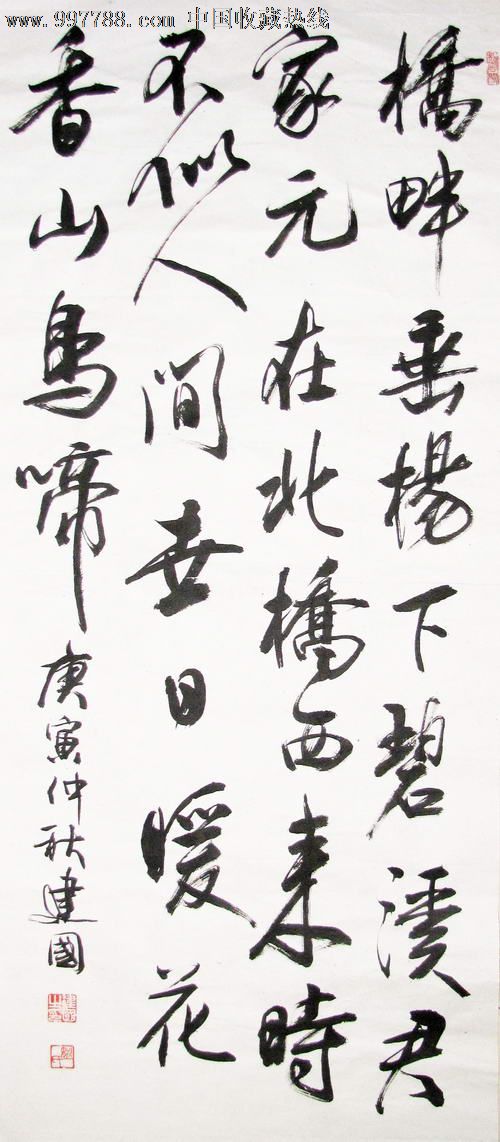 www.997788.com 中国收藏热线
橋畔垂楊下碧溪君
家元在北橋西來時
不似人間世日暖花
香山鳥啼
庚寅仲秋建國